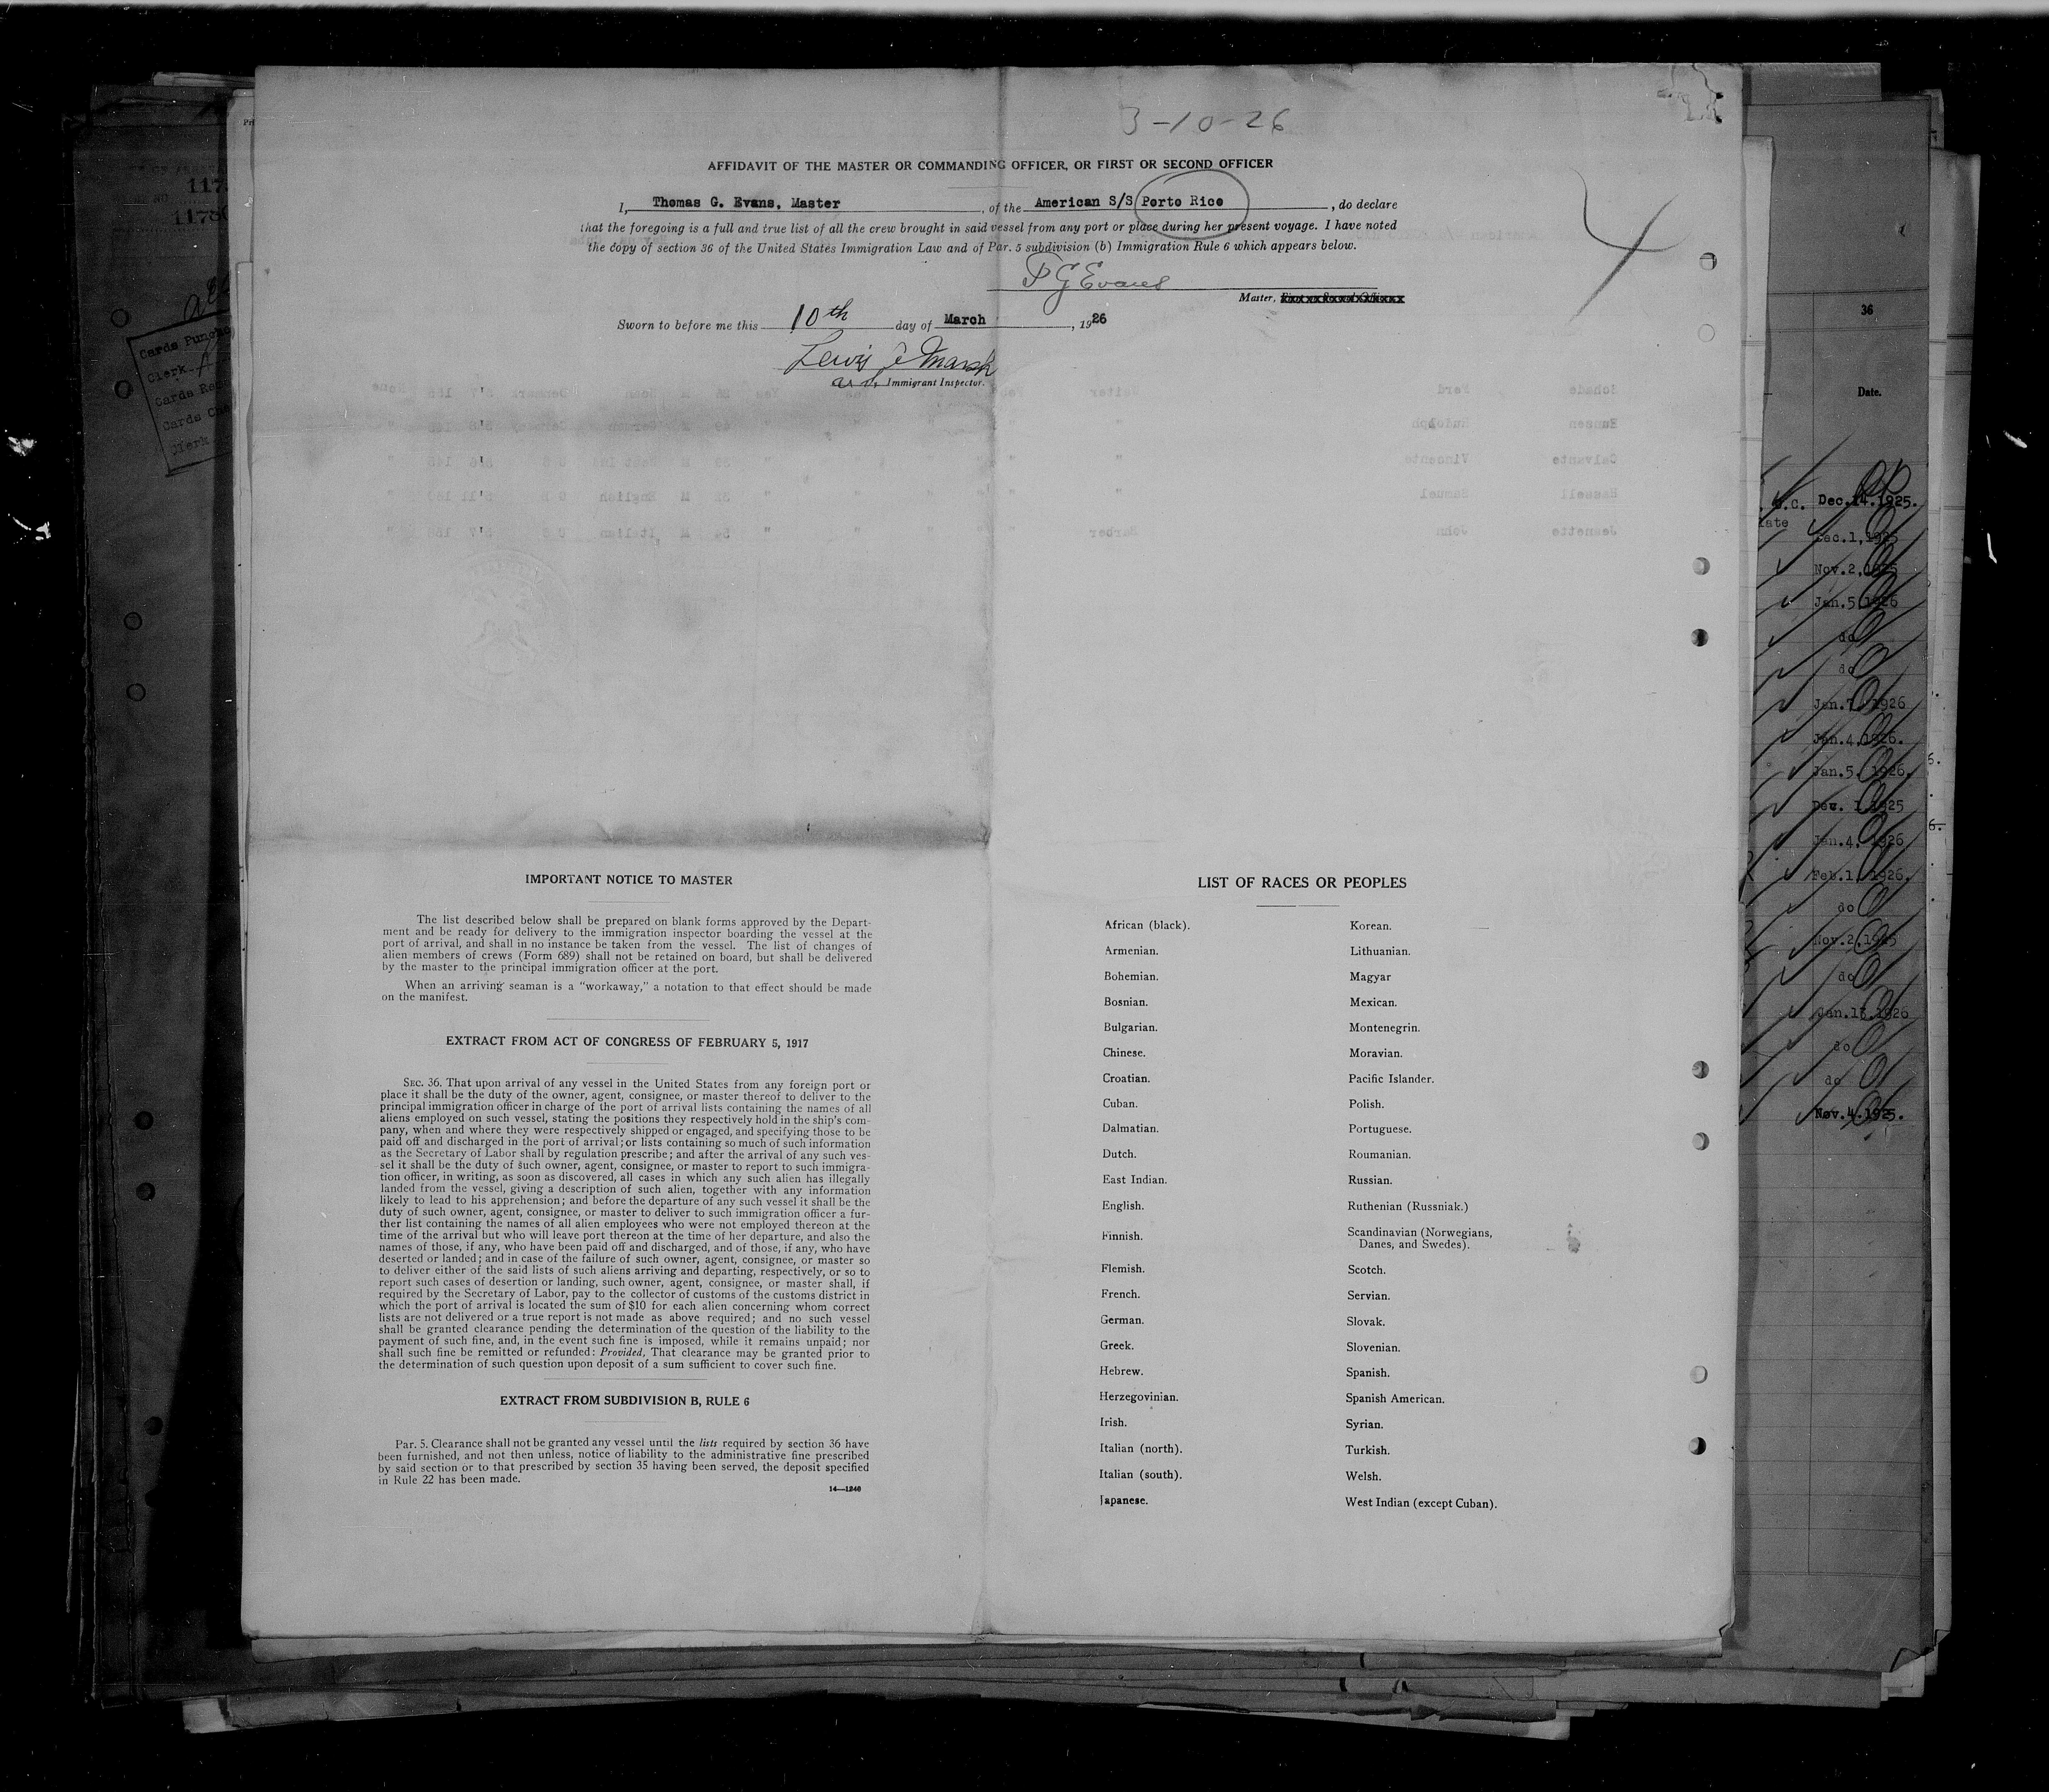 3-10-26
AFFIDAVIT OF THE MASTER OR COMMANDING OFFICER, OR FIRST OR SECOND OFFICER
I, Thomas G. Evans, Master, of the American S/S Porto Rico, do declare
that the foregoing is a full and true list of all the crew brought in said vessel from any port or place during her present voyage. I have noted
the copy of section 36 of the United States Immigration Law and of Par. 5 subdivision (b) Immigration Rule 6 which appears below.
T G Evans
Master,
Sworn to before me this 10th day of March, 1926
Lewis C Marsh
Immigrant Inspector.
IMPORTANT NOTICE TO MASTER
The list described below shall be prepared on blank forms approved by the Depart-
ment and be ready for delivery to the immigration inspector boarding the vessel at the
port of arrival, and shall in no instance be taken from the vessel. The list of changes of
alien members of crews (Form 689) shall not be retained on board, but shall be delivered
by the master to the principal immigration officer at the port.
When an arriving seaman is a "workaway," a notation to that effect should be made
on the manifest.
EXTRACT FROM ACT OF CONGRESS OF FEBRUARY 5, 1917
SEC. 36. That upon arrival of any vessel in the United States from any foreign port or
place it shall be the duty of the owner, agent, consignee, or master thereof to deliver to the
principal immigration officer in charge of the port of arrival lists containing the names of all
aliens employed on such vessel, stating the positions they respectively hold in the ship's com-
pany, when and where they were respectively shipped or engaged, and specifying those to be
paid off and discharged in the port of arrival; or lists containing so much of such information
as the Secretary of Labor shall by regulation prescribe; and after the arrival of any such ves-
sel it shall be the duty of such owner, agent, consignee, or master to report to such immigra-
tion officer, in writing, as soon as discovered, all cases in which any such alien has illegally
landed from the vessel, giving a description of such alien, together with any information
likely to lead to his apprehension; and before the departure of any such vessel it shall be the
duty of such owner, agent, consignee, or master to deliver to such immigration officer a fur-
ther list containing the names of all alien employees who were not employed thereon at the
time of the arrival but who will leave port thereon at the time of her departure, and also the
names of those, if any, who have been paid off and discharged, and of those, if any, who have
deserted or landed; and in case of the failure of such owner, agent, consignee, or master so
to deliver either of the said lists of such aliens arriving and departing, respectively, or so to
report such cases of desertion or landing, such owner, agent, consignee, or master shall, if
required by the Secretary of Labor, pay to the collector of customs of the customs district in
which the port of arrival is located the sum of $10 for each alien concerning whom correct
lists are not delivered or a true report is not made as above required; and no such vessel
shall be granted clearance pending the determination of the question of the liability to the
payment of such fine, and, in the event such fine is imposed, while it remains unpaid; nor
shall such fine be remitted or refunded: Provided, That clearance may be granted prior to
the determination of such question upon deposit of a sum sufficient to cover such fine.
EXTRACT FROM SUBDIVISION B, RULE 6
Par. 5. Clearance shall not be granted any vessel until the lists required by section 36 have
been furnished, and not then unless, notice of liability to the administrative fine prescribed
by said section or to that prescribed by section 35 having been served, the deposit specified
in Rule 22 has been made.
14—1246
LIST OF RACES OR PEOPLES
African (black).
Armenian.
Bohemian.
Bosnian.
Bulgarian.
Chinese.
Croatian.
Cuban.
Dalmatian.
Dutch.
East Indian.
English.
Finnish.
Flemish.
French.
German.
Greek.
Hebrew.
Herzegovinian.
Irish.
Italian (north).
Italian (south).
Japanese.
Korean.
Lithuanian.
Magyar
Mexican.
Montenegrin.
Moravian.
Pacific Islander.
Polish.
Portuguese.
Roumanian.
Russian.
Ruthenian (Russniak.)
Scandinavian (Norwegians,
Danes, and Swedes).
Scotch.
Servian.
Slovak.
Slovenian.
Spanish.
Spanish American.
Syrian.
Turkish.
Welsh.
West Indian (except Cuban).
36
Date.
Dec.14.1925.
Dec.1,1925
Nov.2,1925
Jan.5,1926
do
do
Jan.7,1926
Jan.4,1926.
Jan.5.1926.
1,1925
Jan.4,1926
Feb.1,1926.
do
Nov.2,1925
do
Jan.13.1926
do
do
Nov.4.1925.